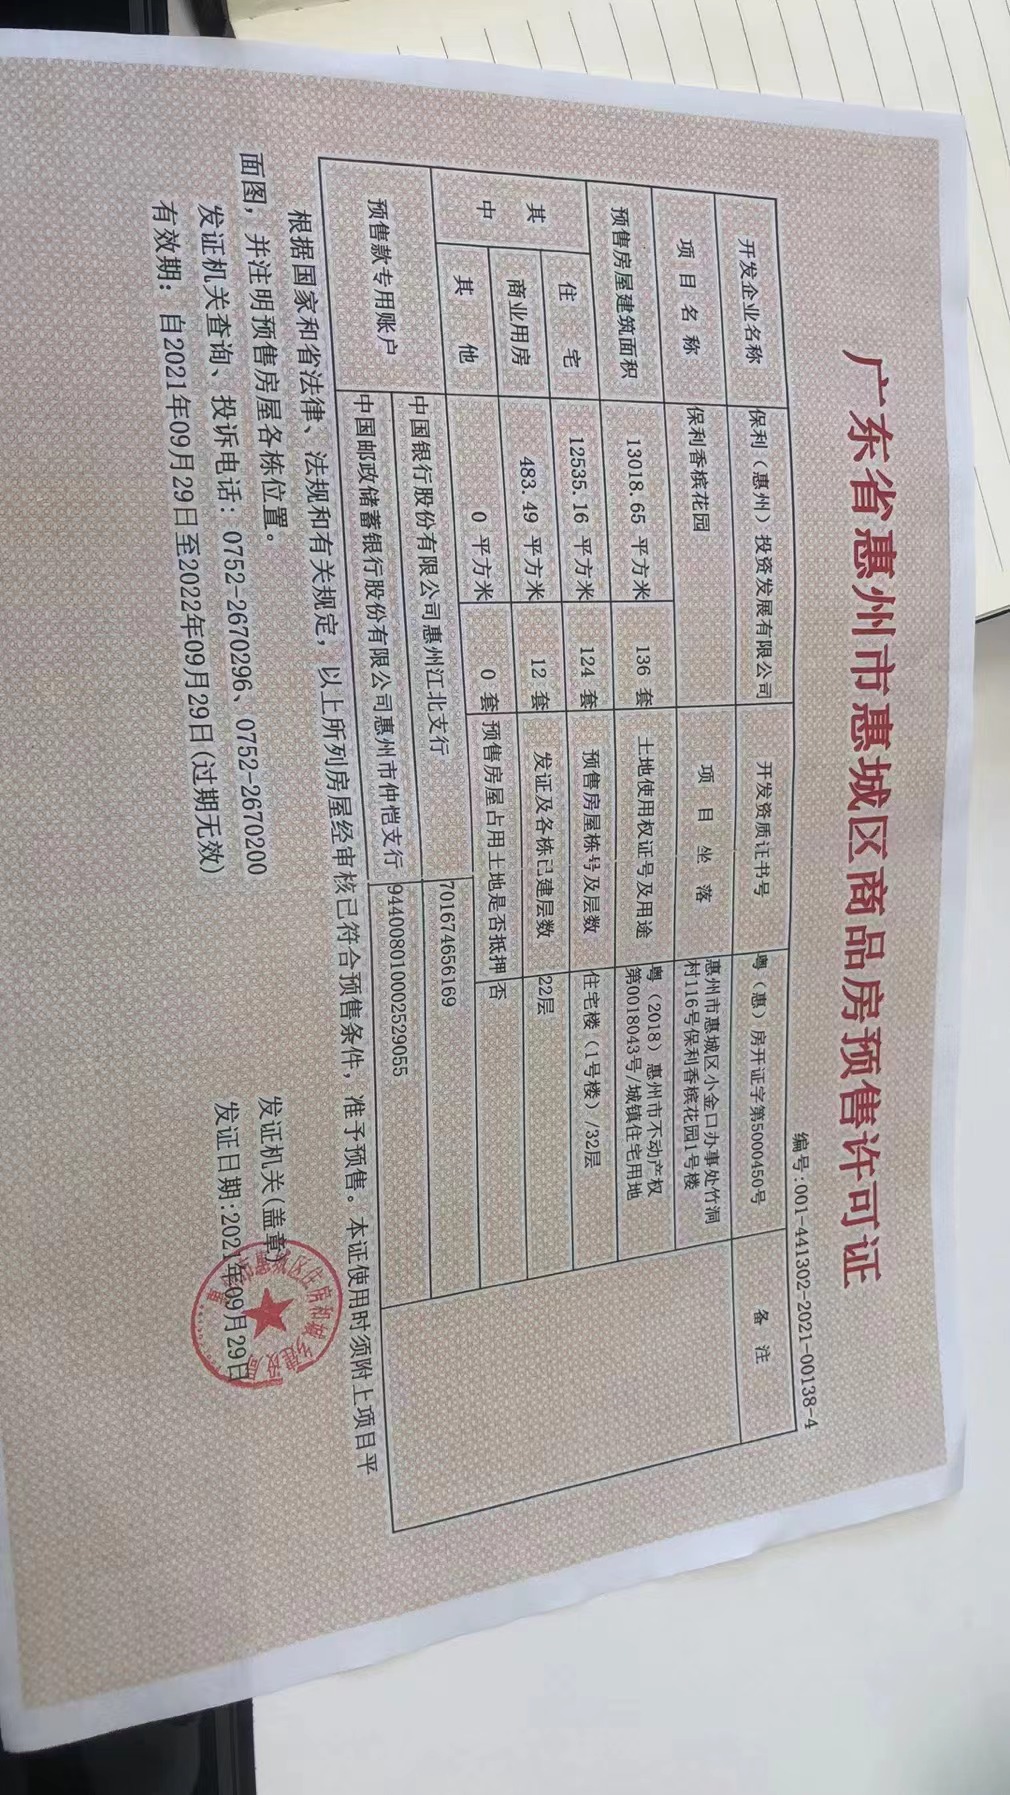 广东省惠州市惠城区商品房预售许可证
编号:001-441302-2021-00138-4
开发企业名称 保利（惠州）投资发展有限公司 开发资质证书号 粤（惠）房开证字第5000450号 备 注
项 目 名 称 保利香槟花园 项 目 坐 落 惠州市惠城区小金口办事处竹洞
村116号保利香槟花园1号楼
预售房屋建筑面积 13018.65 平方米 136 套 土地使用权证号及用途 粤（2018）惠州市不动产权
第0018043号/城镇住宅用地
其中 住 宅 12535.16 平方米 124 套 预售房屋栋号及层数 住宅楼（1号楼）/32层
商业用房 483.49 平方米 12 套 发证及各栋已建层数 22层
其 他 0 平方米 0 套 预售房屋占用土地是否抵押 否
预售款专用账户 中国银行股份有限公司惠州江北支行 701674656169
中国邮政储蓄银行股份有限公司惠州市仲恺支行 944008010002529055
根据国家和省法律、法规和有关规定，以上所列房屋经审核已符合预售条件，准予预售。本证使用时须附上项目平
面图，并注明预售房屋各栋位置。
发证机关查询、投诉电话：0752-2670296、0752-2670200
有效期：自2021年09月29日至2022年09月29日(过期无效)
发证机关(盖章)
发证日期:2021年09月29日
惠城区住房和城乡建设局